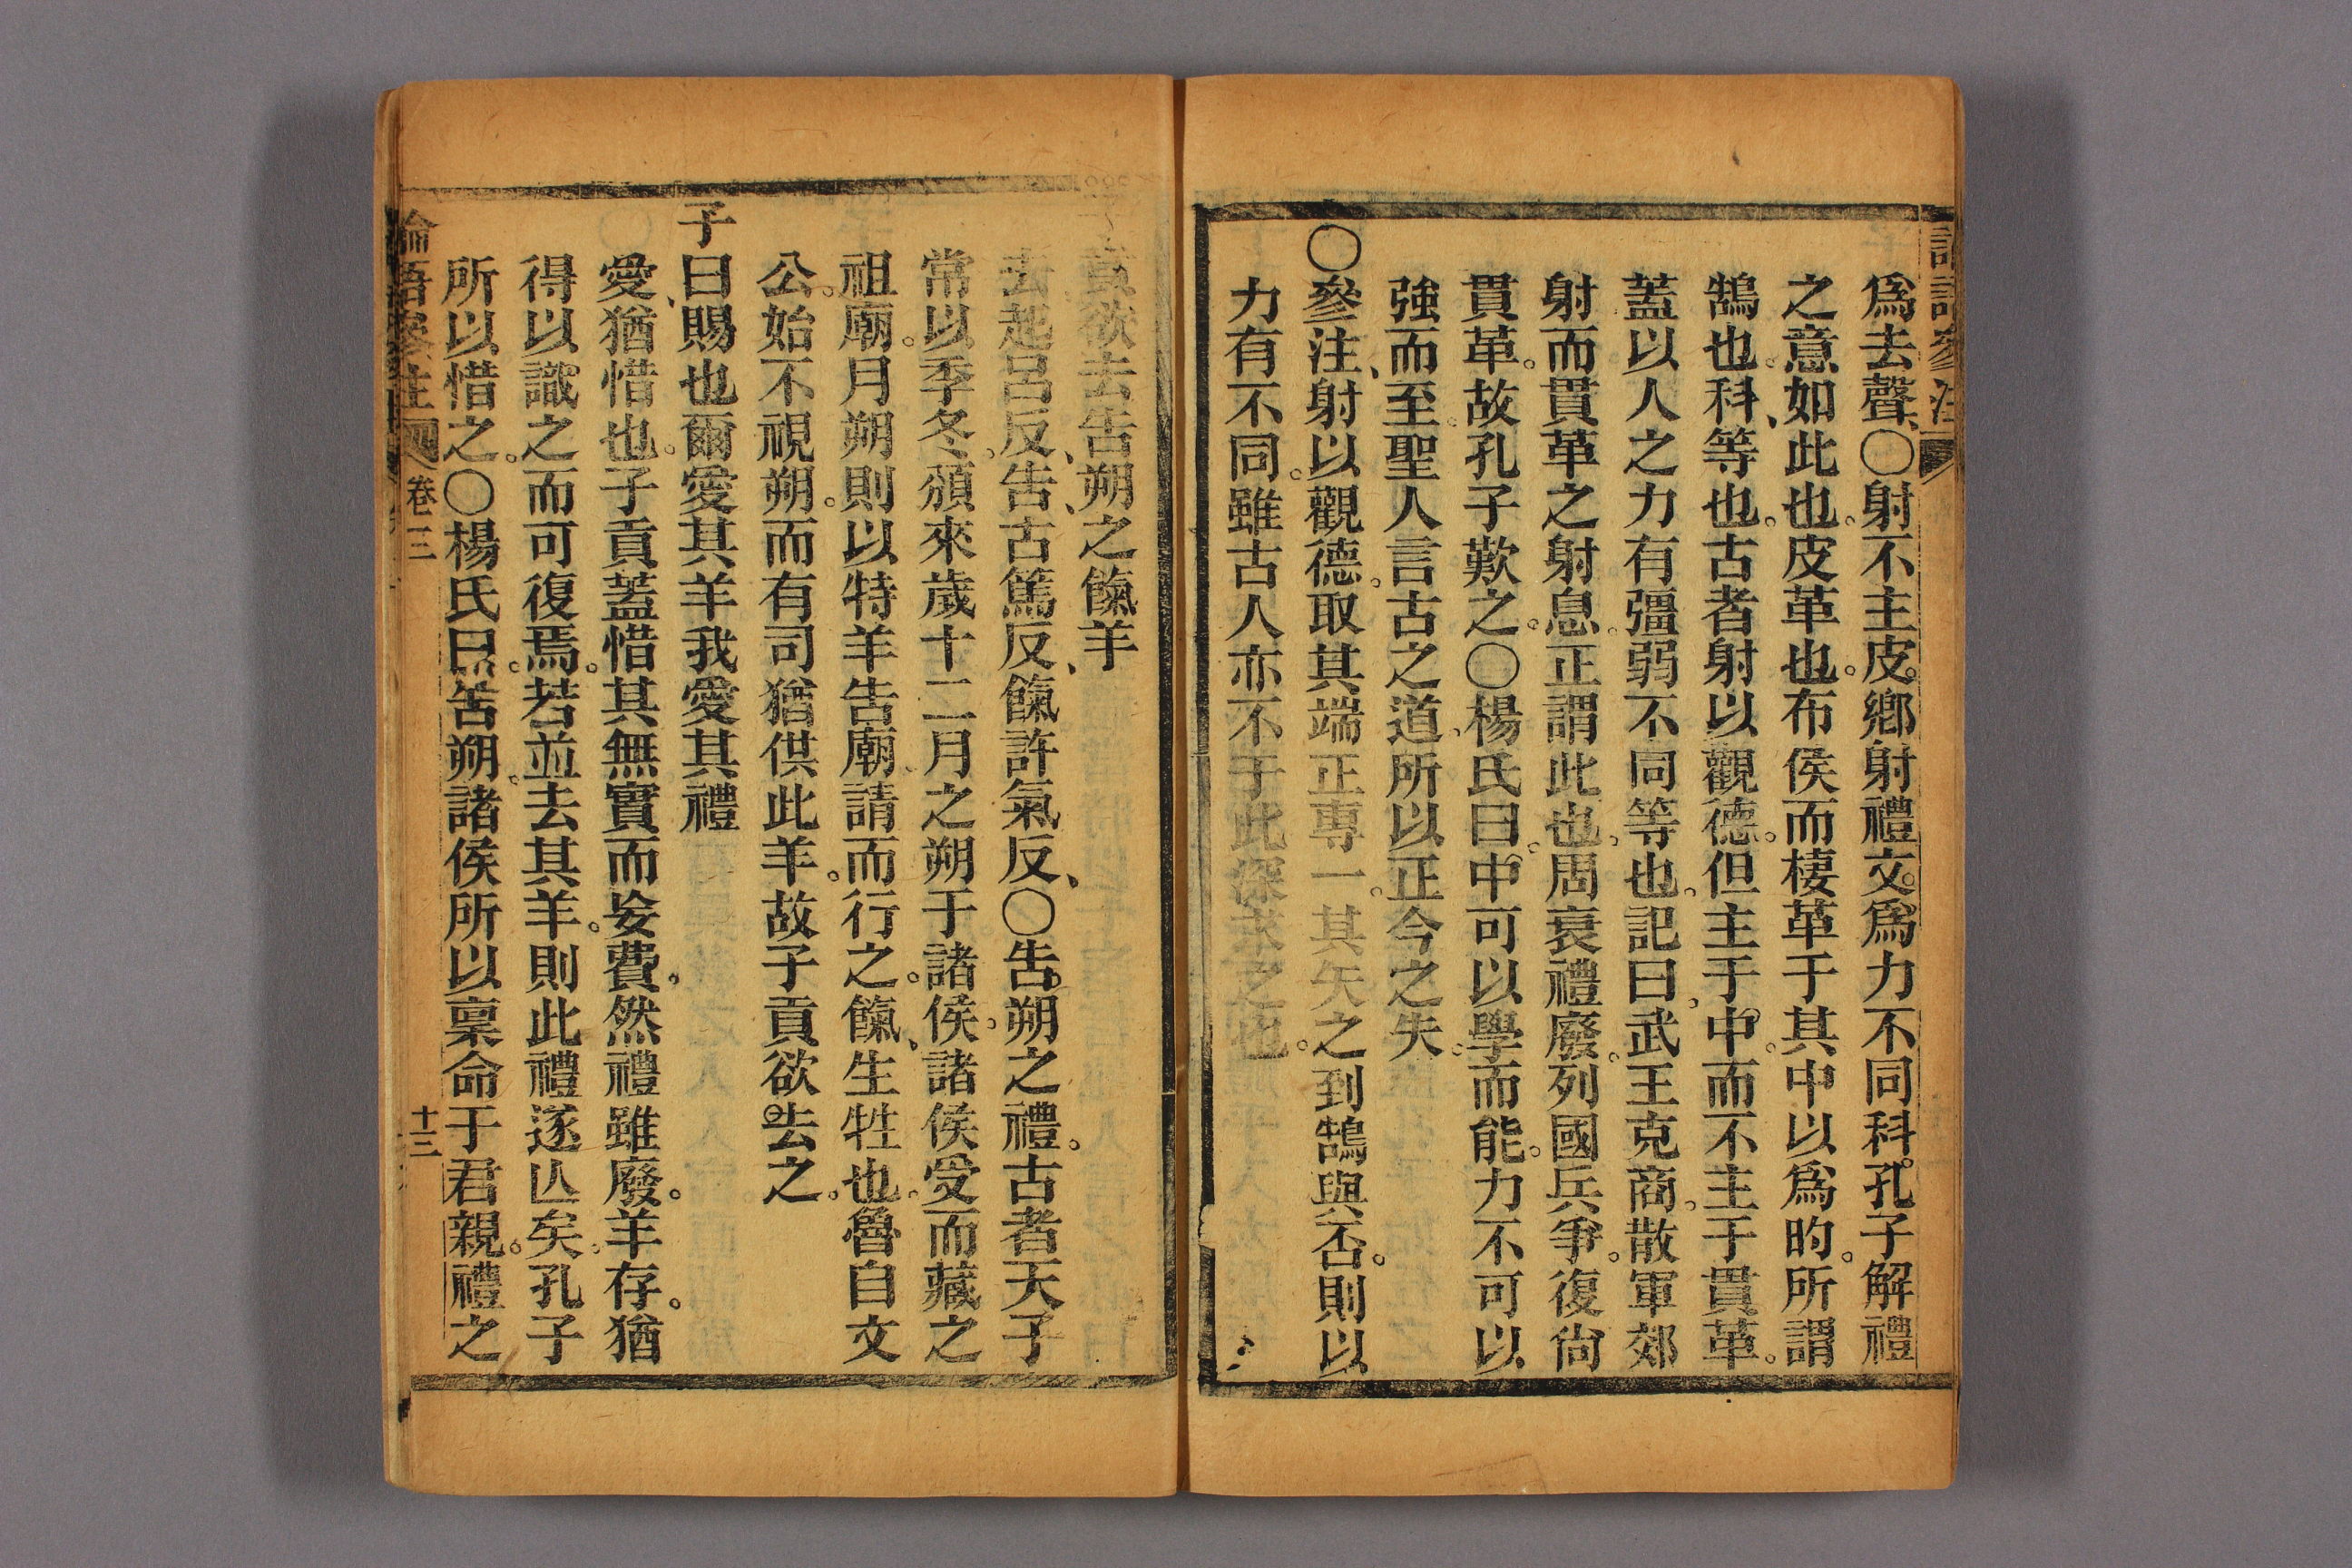 爲去聲、〇射不主皮。鄉射禮文。爲力不同科。孔子解禮
之意如此也。皮革也。布侯而棲革于其中以爲的。所謂
鵠也。科、等也。古者射以觀德。但主于中。而不主于貫革。
蓋以人之力有彊弱不同等也。記曰。武王克商。散軍郊
射而貫革之射息。正謂此也。周衰禮廢。列國兵爭。復尙
貫革。故孔子歎之。〇楊氏曰。中可以學而能。力不可以
強而至。聖人言古之道。所以正今之失。
〇參注、射以觀德。取其端正專一。其矢之到鵠與否。則以
力有不同。雖古人亦不于此深求之也。
子貢欲去告朔之餼羊
去起呂反、告古篤反、餼許氣反、〇告朔之禮。古者天子
常以季冬。頒來歲十二月之朔于諸侯。諸侯受而藏之
祖廟。月朔則以特羊告廟。請而行之。餼、生牲也。魯自文
公始不視朔。而有司猶供此羊。故子貢欲去之。
子曰賜也爾愛其羊我愛其禮
愛、猶惜也。子貢蓋惜其無實而妄費。然禮雖廢。羊存。猶
得以識之而可復焉。若並去其羊。則此禮遂亾矣。孔子
所以惜之。〇楊氏曰。告朔。諸侯所以稟命于君親。禮之
論語參注 卷三 十三